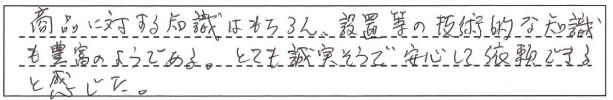 商品に対する知識はもちろん、設置等の技術的な知識
も豊富のようである。とても誠実そうで安心して依頼できる
と感じた。